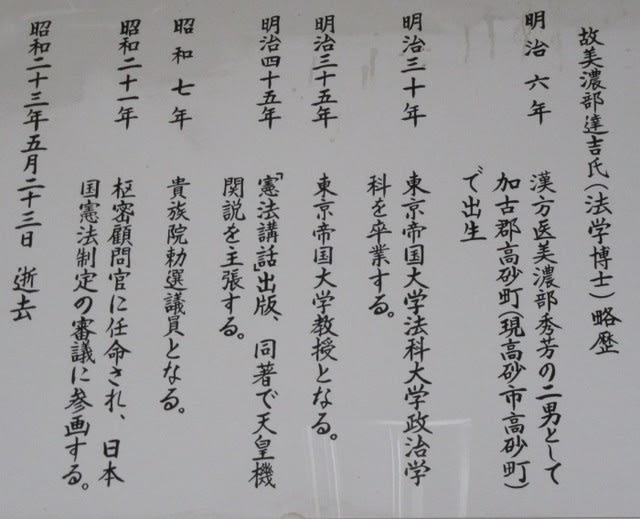 故美濃部達吉氏(法学博士)略歴
明治六年 漢方医美濃部秀芳の二男として
加古郡高砂町(現高砂市高砂町)
で出生
明治三十年 東京帝国大学法科大学政治学
科を卒業する。
明治三十五年 東京帝国大学教授となる。
明治四十五年 「憲法講話」出版、同著で天皇機
関説を主張する。
昭和七年 貴族院勅選議員となる。
昭和二十一年 枢密顧問官に任命され、日本
国憲法制定の審議に参画する。
昭和二十三年五月二十三日 逝去